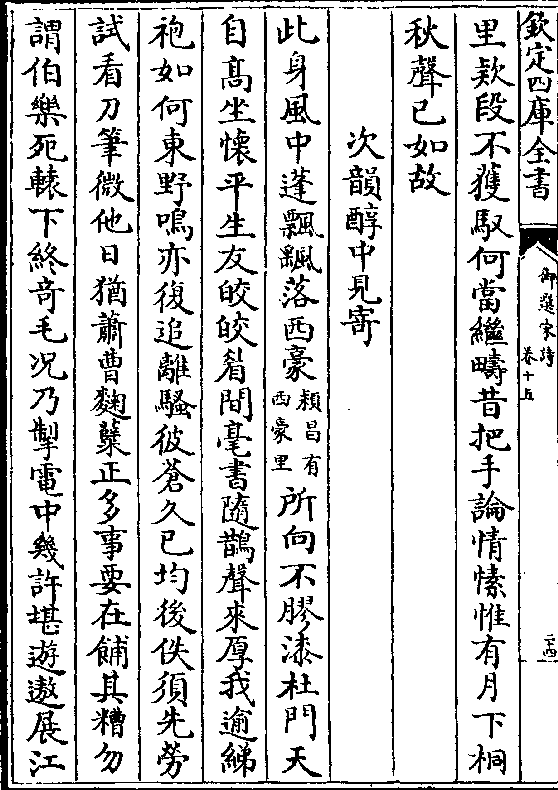 欽定四庫全書
御選宋詩
卷十五
二十四
里欵段不獲馭何當繼疇昔把手論情愫惟有月下桐
秋聲已如故
次韻醇中見寄
此身風中蓬飄飄落西豪潁昌有西豪里所向不膠漆杜門天
自髙坐懷平生友皎皎眉間毫書隨鵲聲來厚我逾綈
袍如何東野鳴亦復追離騷彼蒼久已均後佚須先勞
試看刀筆微他日猶蕭曹麴糵正多事要在餔其糟勿
謂伯樂死轅下終竒毛况乃掣電中幾許堪遊遨展江